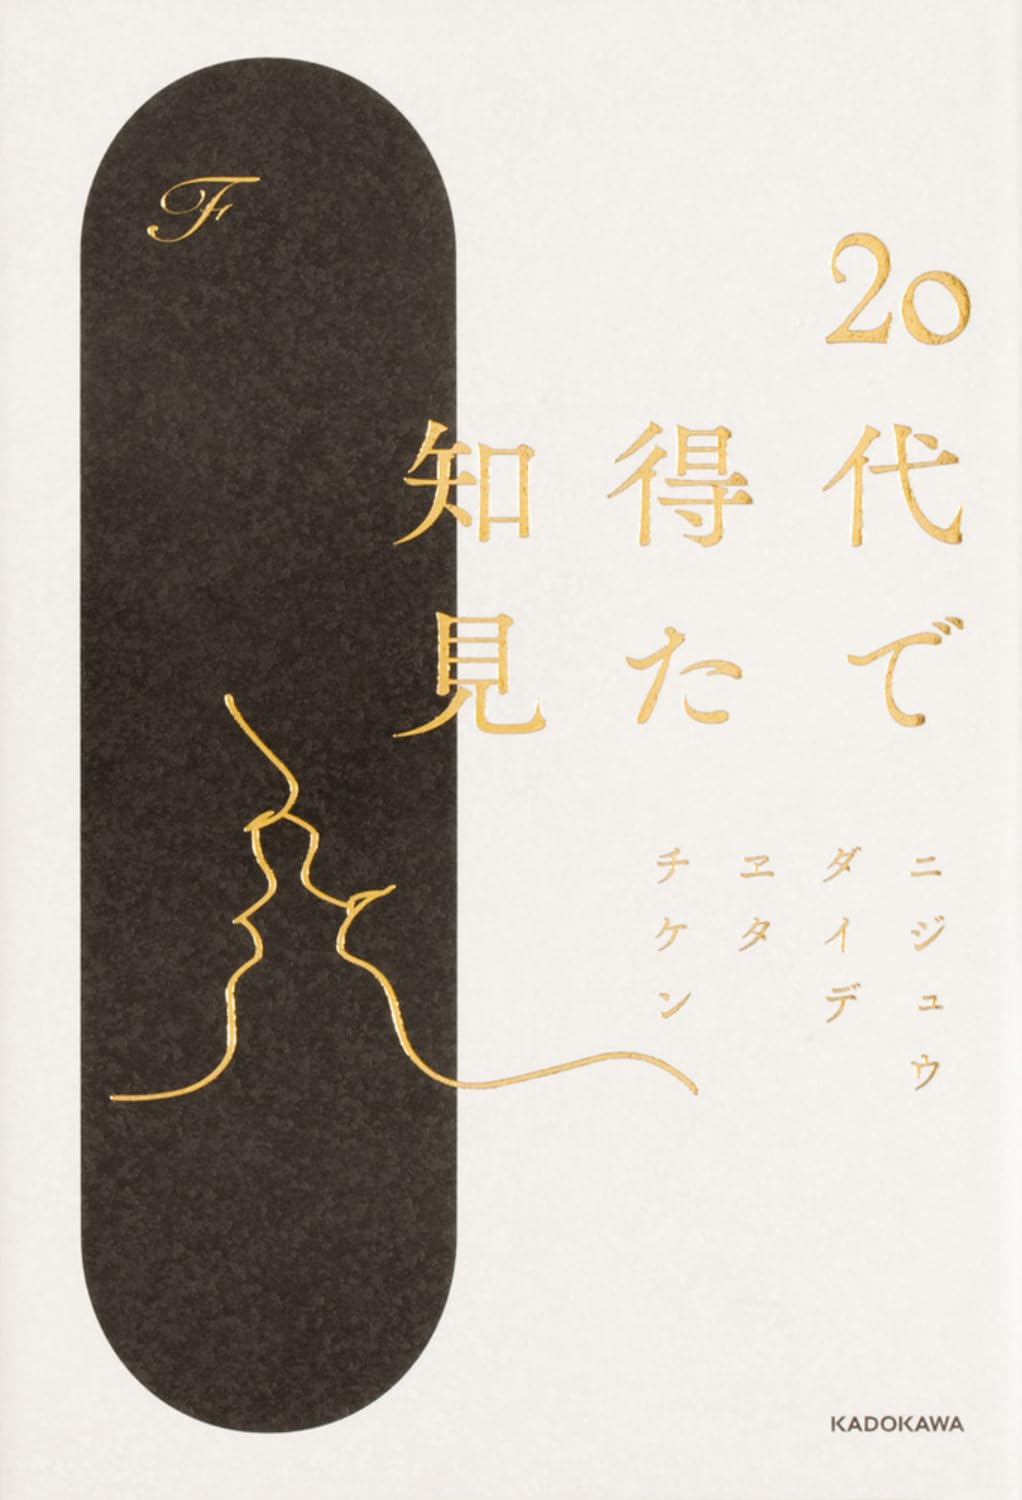 20代で
得た
知見
ニジュウ
ダイデ
ヱタ
チケン
F
KADOKAWA